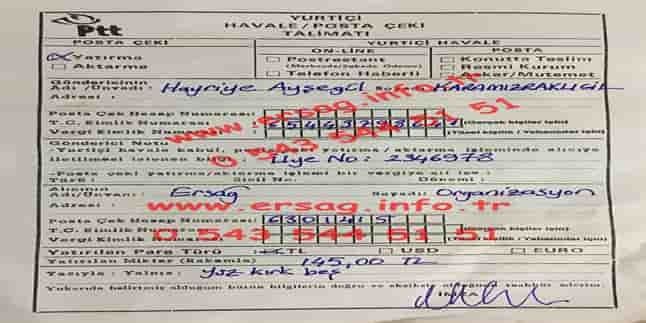 Ptt
YURTİÇİ
HAVALE/POSTA ÇEKİ
TALİMATI
POSTA ÇEKİ
YURTİÇİ HAVALE
ON-LINE
POSTA
Yatırma
Aktarma
Postrestant
(Merkezde/Şubede Ödeme)
Telefon Haberli
Konutta Teslim
Resmi Kurum
Asker/Mutemet
Göndericinin
Adı /Unvanı: Hayriye Ayşegül KARAMIZRAKLIGİL
Adresi :
Posta Çek Hesap Numarası
T.C. Kimlik Numarası
Vergi Kimlik Numarası
Gönderici Notu
Üye No: 2346978
www.ersag.info.tr
0 543 544 51 51
Alıcının
Adı/Unvanı: Ersag Soyadı: Organizasyon
Adresi :
www.ersag.info.tr
Posta Çek Hesap Numarası 6301415
T.C. Kimlik Numarası
Vergi Kimlik Numarası
0 543 544 51 51
Yatırılan Para Türü TL USD EURO
Yatırılan Miktar (Rakamla) 145,00 TL
Yazıyla: Yalnız: yüz kırk beş